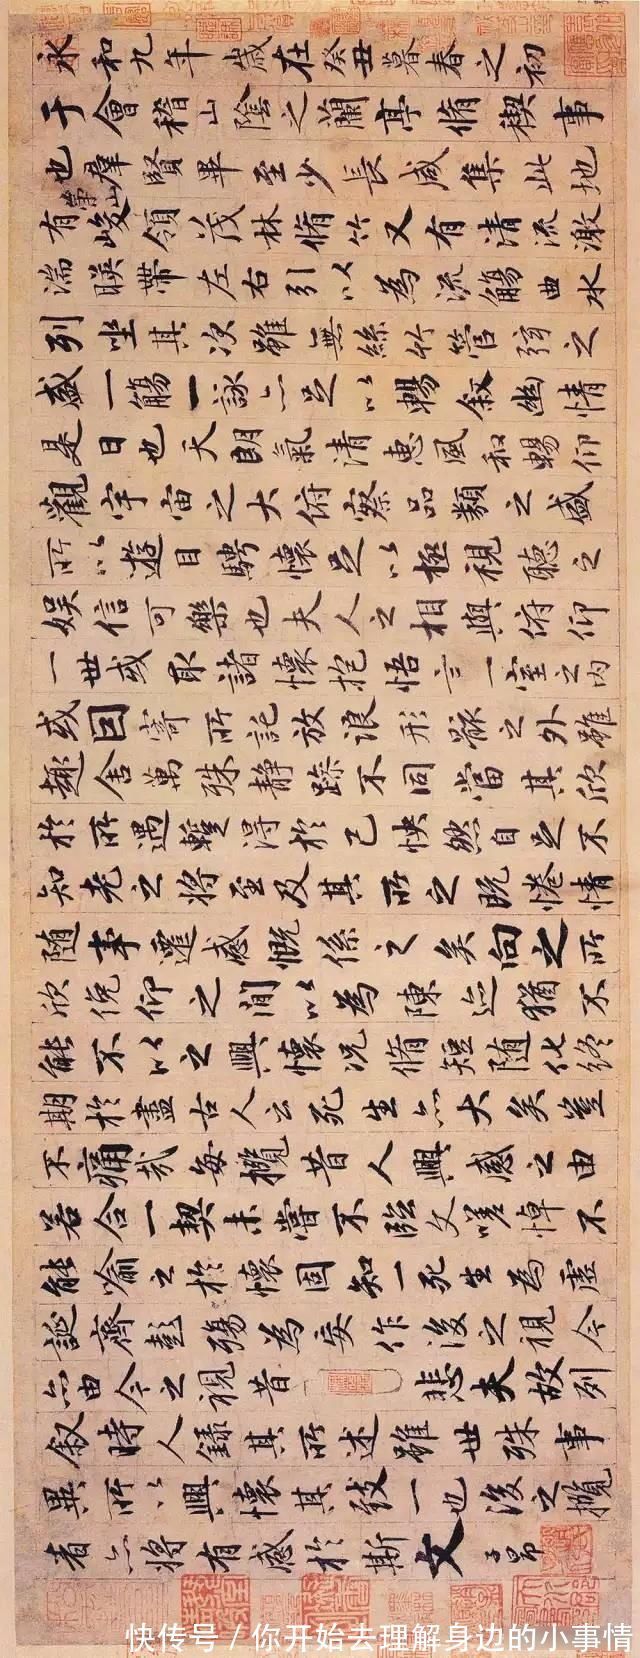 永和九年歲在癸丑暮春之初
于會稽山陰之蘭亭脩稧事
也羣賢畢至少長咸集此地
有崇山峻領茂林脩竹又有清流激
湍暎帶左右引以為流觴曲水
列坐其次雖無絲竹管弦之
盛一觴一詠亦足以暢敘幽情
是日也天朗氣清惠風和暢仰
觀宇宙之大俯察品類之盛
所以遊目騁懷足以極視聽之
娛信可樂也夫人之相與俯仰
一世或取諸懷抱悟言一室之內
或因寄所託放浪形骸之外雖
趣舍萬殊静躁不同當其欣
於所遇蹔得於己怏然自足不
知老之將至及其所之既惓情
随事遷感慨係之矣向之所
欣俛仰之間以為陳迹猶不
能不以之興懷況脩短随化終
期於盡古人云死生亦大矣豈
不痛哉每攬昔人興感之由
若合一契未嘗不臨文嗟悼不
能喻之於懷固知一死生為虛
誕齊彭殤為妄作後之視今
亦由今之視昔 悲夫故列
敘時人錄其所述雖世殊事
異所以興懷其致一也後之攬
者亦將有感於斯文 子昂
快传号/你开始去理解身边的小事情